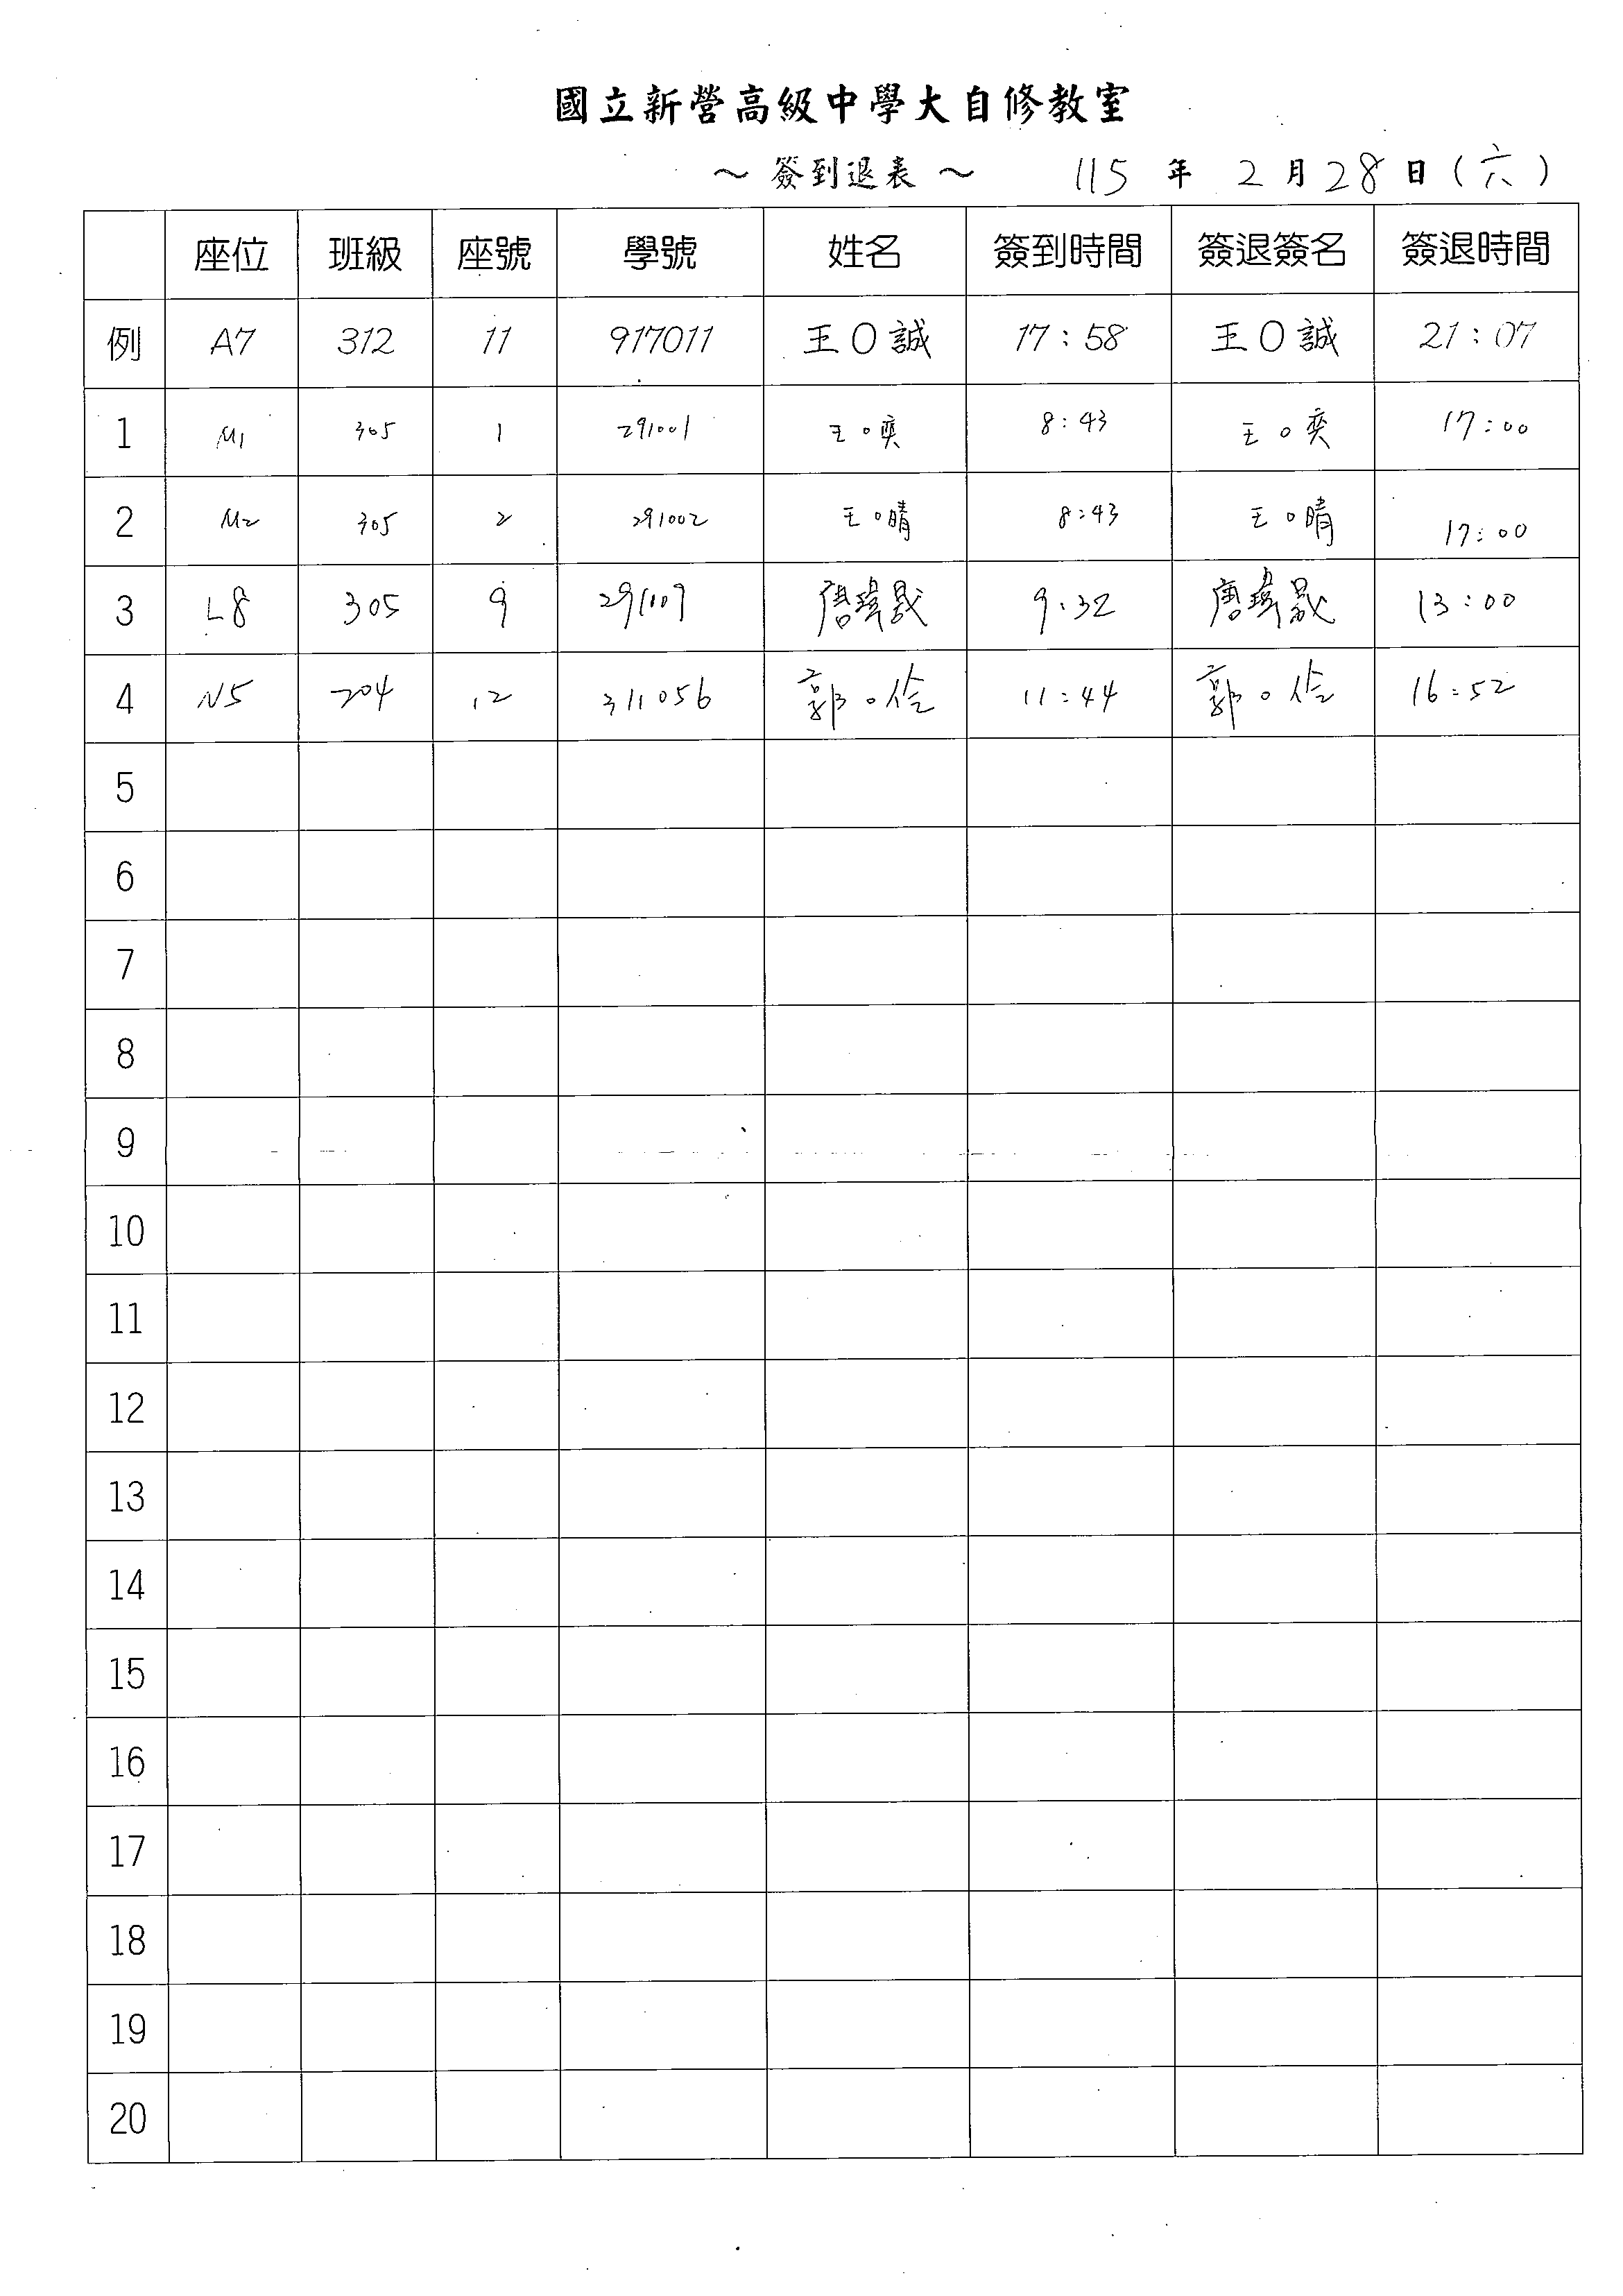 國立新營高級中學大自修教室
～ 簽到退表 ～ 115 年 2 月 28 日 (六)
座位 班級 座號 學號 姓名 簽到時間 簽退簽名 簽退時間
例 A7 312 11 917011 王O誠 17:58 王O誠 21:07
1 M1 305 1 291001 王O奕 8:43 王O奕 17:00
2 M2 305 2 291002 王O晴 8:43 王O晴 17:00
3 L8 305 9 291009 唐瑋晟 9:32 唐瑋晟 13:00
4 N5 204 12 311056 郭O倫 11:44 郭O倫 16:52
5
6
7
8
9
10
11
12
13
14
15
16
17
18
19
20